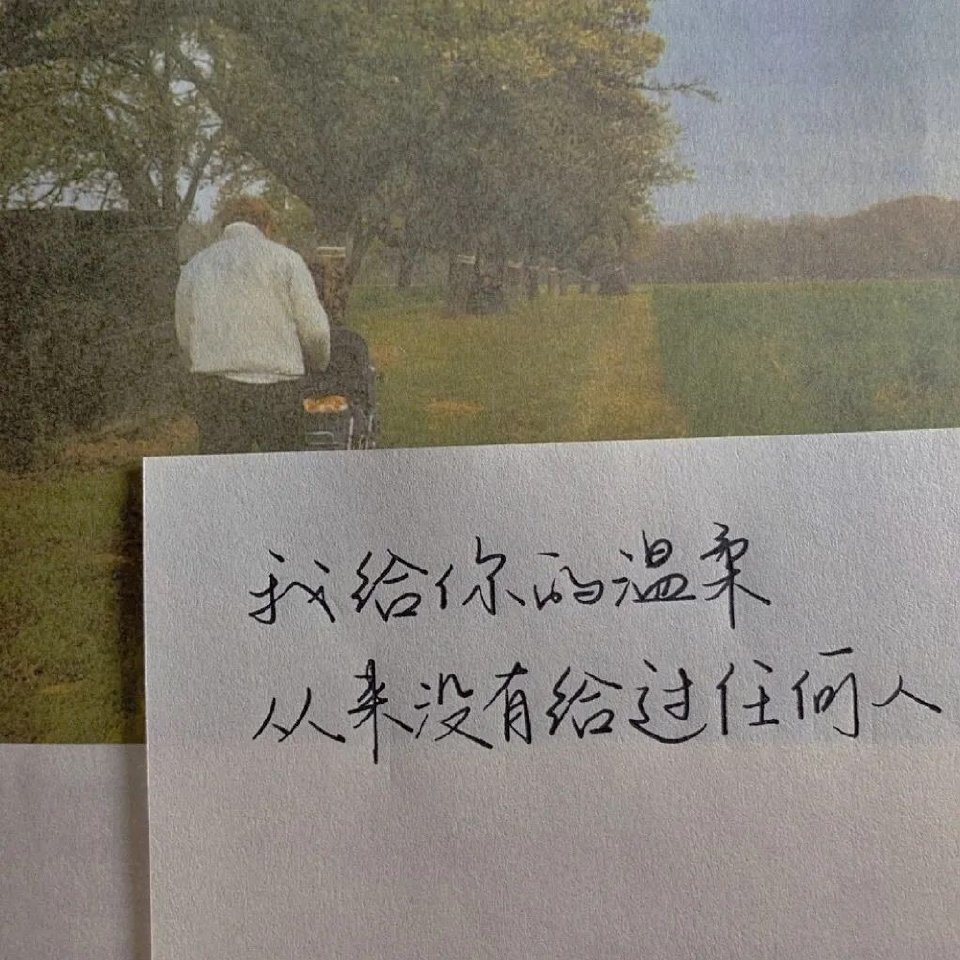 我给你的温柔
从来没有给过任何人